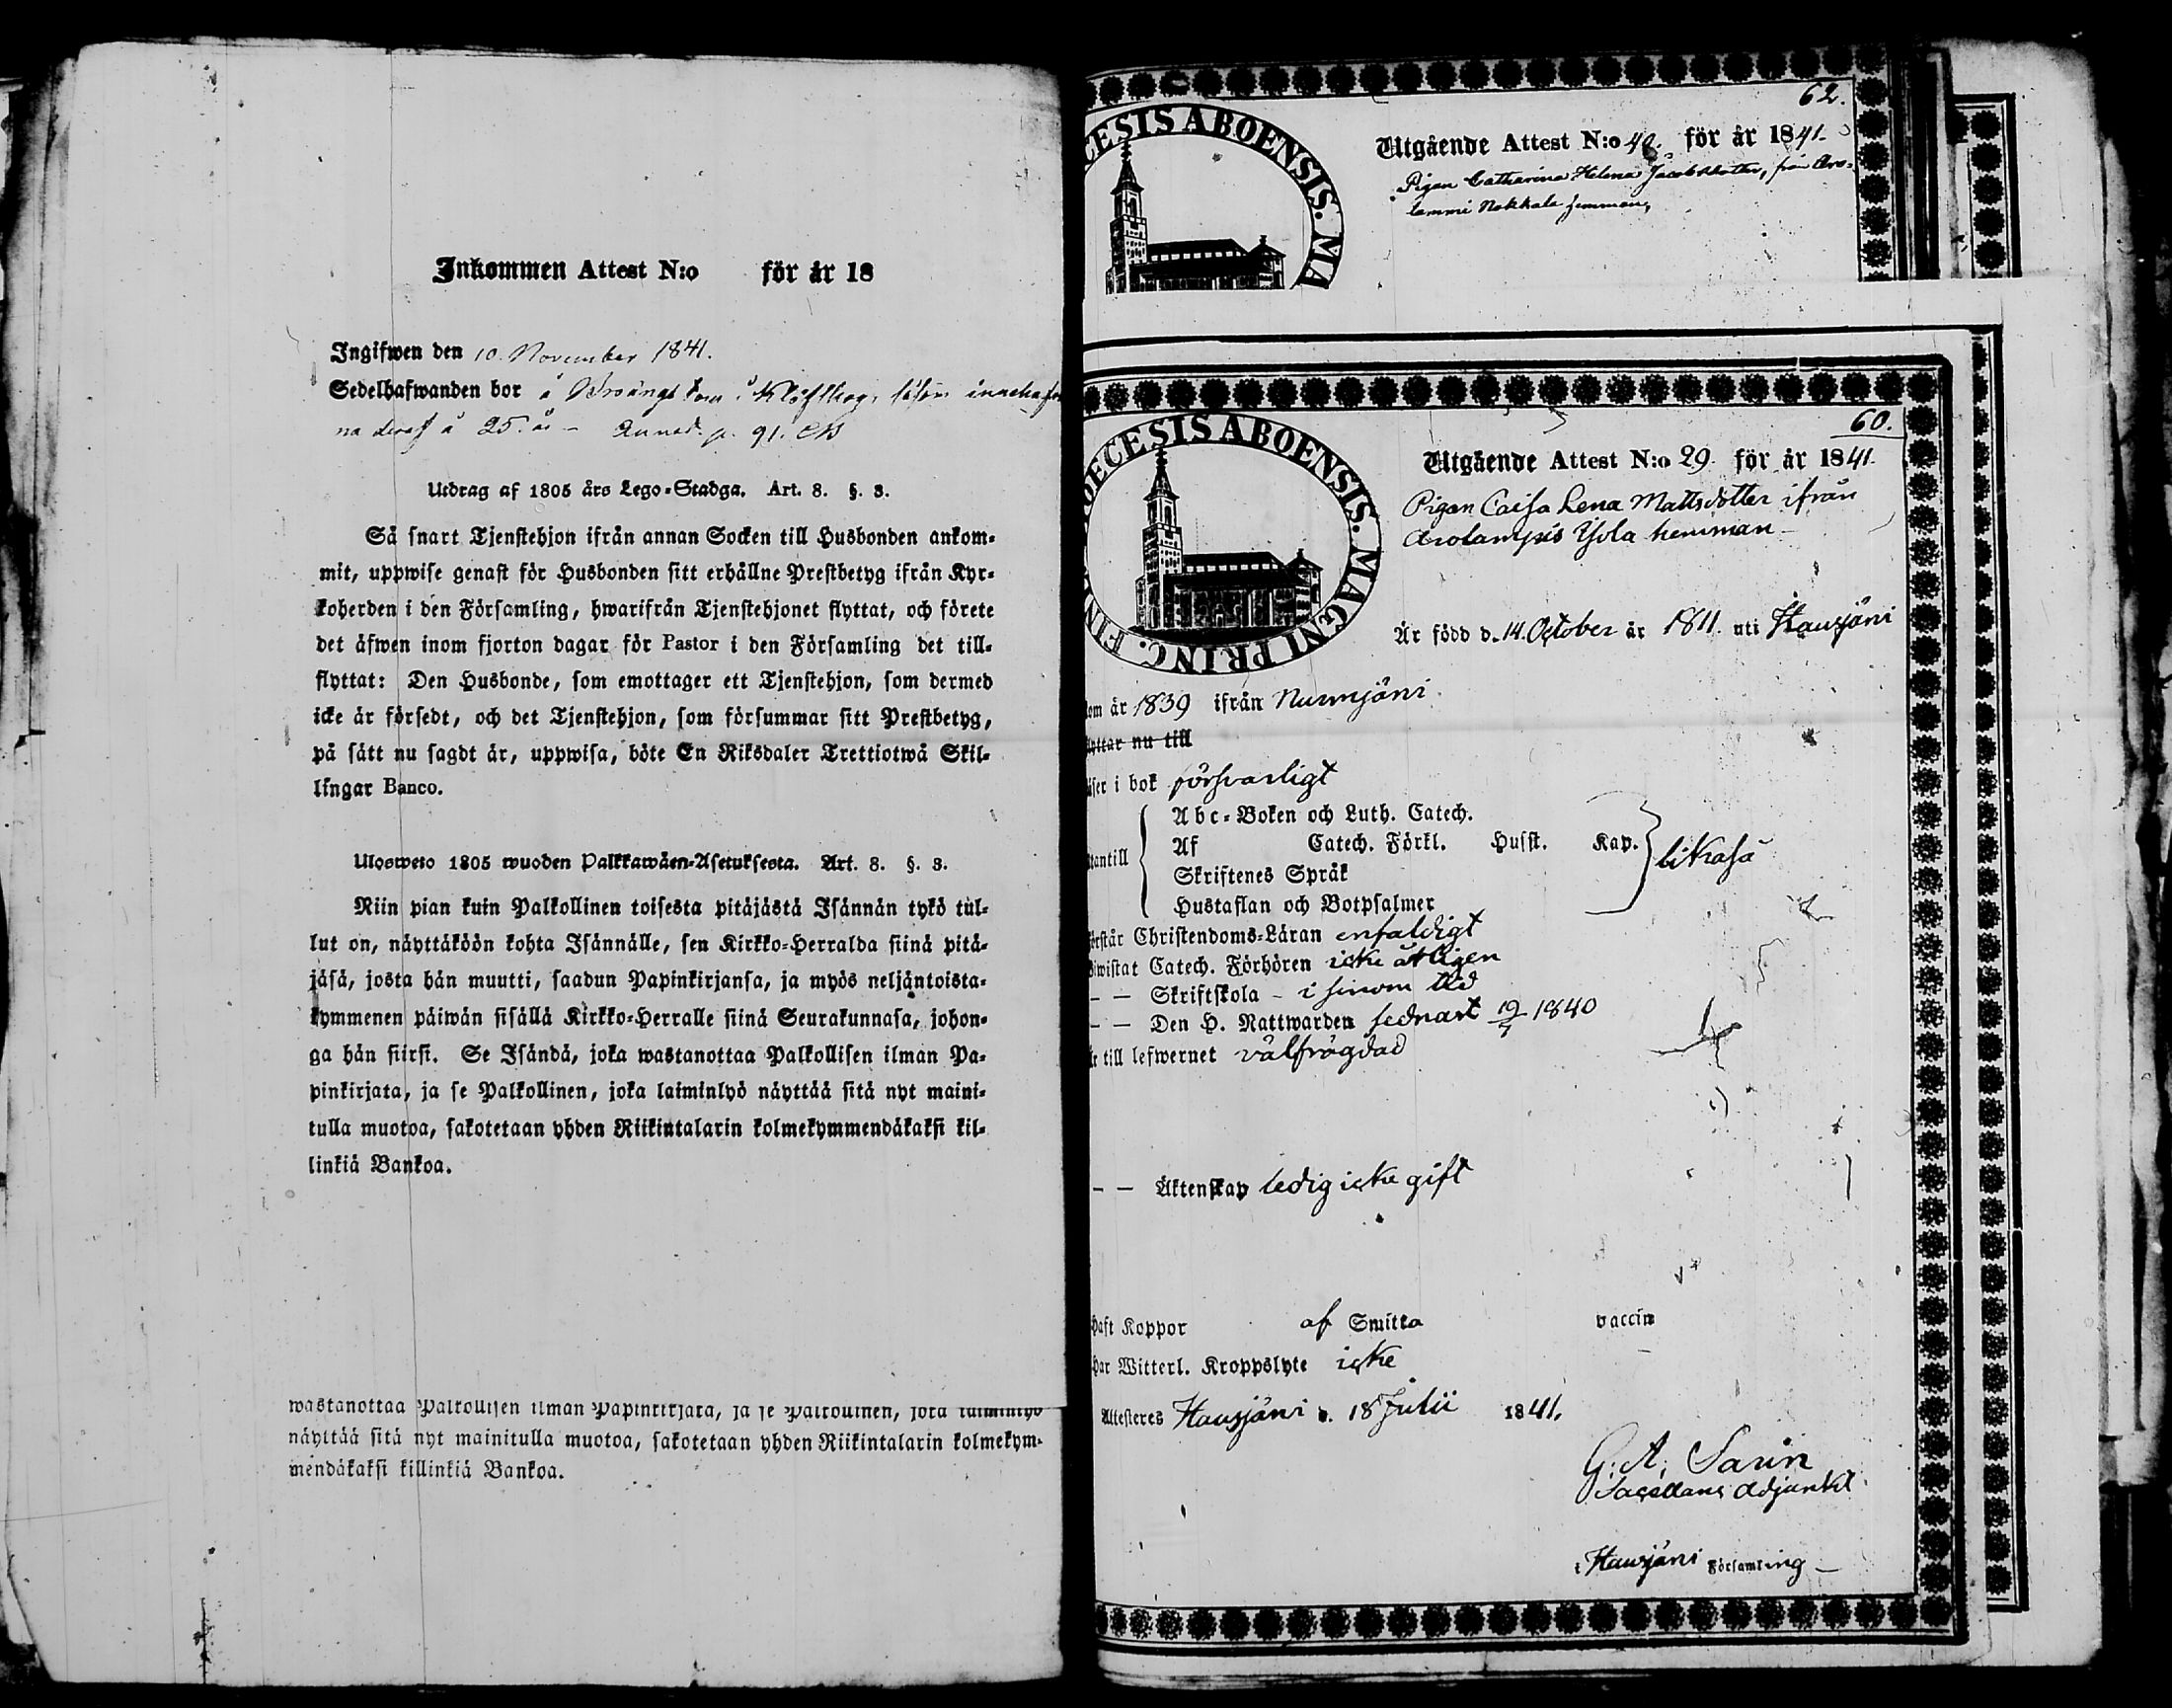 Inkommen Attest N:o för år 18
Ingifwen den 10 November 1841.
Sedelhafwanden bor å
na deraf å 25. år – p. 91.
Utdrag af 1805 års Lego-Stadga. Art. 8. §. 3.
Så snart Tjenstehjon ifrån annan Socken till Husbonden ankom-
mit, uppwise genast för Husbonden sitt erhållne Prestbetyg ifrån Kyr-
koherden i den Församling, hwarifrån Tjenstehjonet flyttat, och förete
det äfwen inom fjorton dagar för Pastor i den Församling det till-
flyttat: Den Husbonde, som emottager ett Tjenstehjon, som dermed
icke är försedt, och det Tjenstehjon, som försummar sitt Prestbetyg,
på sätt nu sagdt är, uppwisa, böte En Riksdaler Trettiotwå Skil-
lingar Banco.
Ulosweto 1805 wuoden Palkkawäen-Asetuksesta. Art. 8. §. 3.
Niin pian kuin Palkollinen toisesta pitäjästä Isännän tykö tul-
lut on, näyttäköön kohta Isännälle, sen Kirkko-Herralda siinä pitä-
jäsä, josta hän muutti, saadun Papinkirjansa, ja myös neljäntoista-
kymmenen päiwän sisällä Kirkko-Herralle siinä Seurakunnasa, johon-
ga hän siirsi. Se Isändä, joka wastanottaa Palkollisen ilman Pa-
pinkirjata, ja se Palkollinen, joka laiminlyö näyttää sitä nyt maini-
tulla muotoa, sakotetaan yhden Riikintalarin kolmekymmendäkaksi kil-
linkiä Bankoa.
wastanottaa Palkollisen ilman Papinkirjata, ja se Palkollinen, joka laiminlyö
näyttää sitä nyt mainitulla muotoa, sakotetaan yhden Riikintalarin kolmekym-
mendäkaksi killinkiä Bankoa.
62.
CESIS ABOENSIS. MA
Utgående Attest N:o 40. för år 1841.
Pigan Catharina Helena Jacobsdotter, från Aro-
lammi Nokkala hemman,
60.
OECESIS ABOENSIS. MAGNI PRINC. FIN
Utgående Attest N:o 29. för år 1841.
Pigan Caisa Lena Mattsdotter ifrån
Arolampis Yola hemman –
Är född d. 14. October år 1811. uti Hausjärvi
om år 1839 ifrån Nurmijärvi
lyttar nu till
äser i bok försvarligt
Abc-Boken och Luth. Catech.
Af Catech. Förkl. Husst. Kap.
likaså
tantill
Skriftenes Språk
Hustaflan och Botpsalmer
örstår Christendoms-Läran enfaldigt
biwistat Catech. Förhören icke årligen
– – Skriftskola – i sinom tid
– – Den H. Nattwarden sednast 19/7 1840
är till lefwernet välfrägdad
– – Äktenskap ledig icke gift
haft Koppor af Smitta vaccin
har Witterl. Kroppslyte icke
Attesteres Hausjärvi d. 18 Julii 1841.
G. A. Sarin
Sacellans Adjunkt
i Hausjärvi Församling –